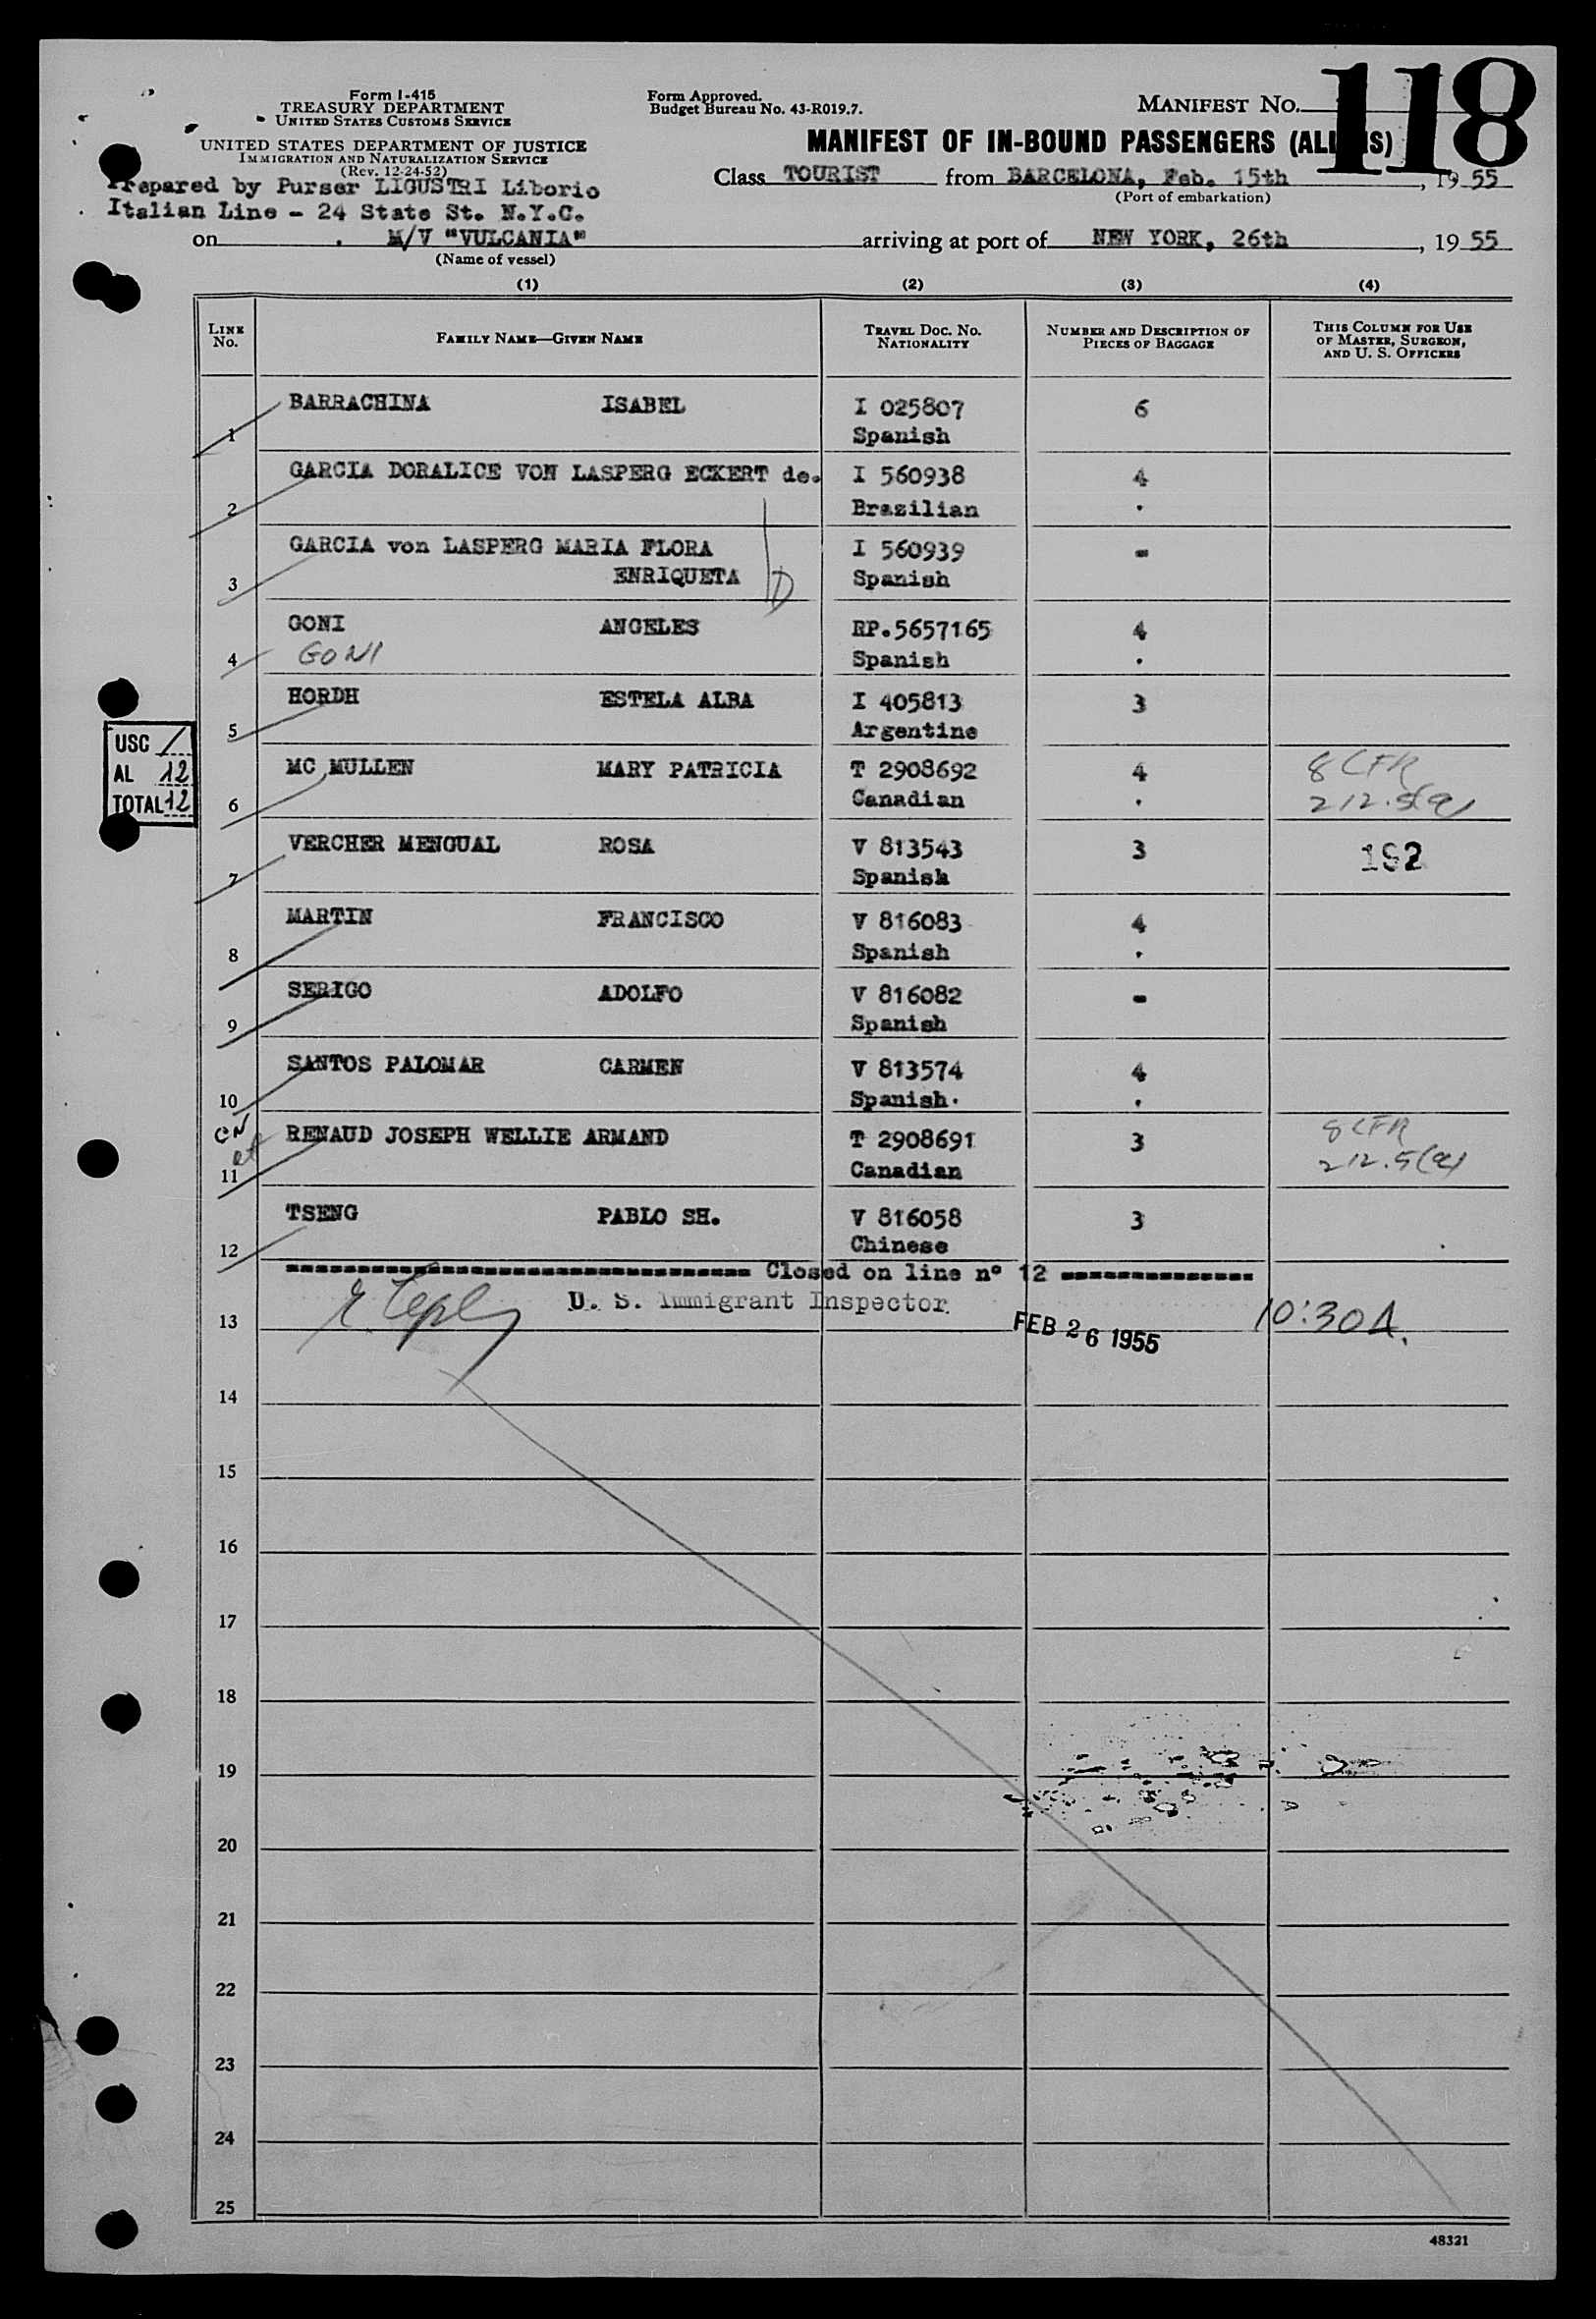 118
Form I-415
TREASURY DEPARTMENT
UNITED STATES CUSTOMS SERVICE
UNITED STATES DEPARTMENT OF JUSTICE
IMMIGRATION AND NATURALIZATION SERVICE
(Rev. 12-24-52)
Prepared by Purser LIGUSTRI Liborio
Italian Line - 24 State St. N.Y.C.
Form Approved.
Budget Bureau No. 43-R019.7.
MANIFEST NO.
MANIFEST OF IN-BOUND PASSENGERS (ALIENS)
Class TOURIST from BARCELONA, Feb. 15th, 19 55
(Port of embarkation)
on M/V "VULCANIA" arriving at port of NEW YORK, 26th, 19 55
(Name of vessel)
(1) (2) (3) (4)
LINE NO. FAMILY NAME—GIVEN NAME TRAVEL DOC. NO. NATIONALITY NUMBER AND DESCRIPTION OF PIECES OF BAGGAGE THIS COLUMN FOR USE OF MASTER, SURGEON, AND U. S. OFFICERS
1 BARRACHINA ISABEL I 025807 6
Spanish
2 GARCIA DORALICE VON LASPERG ECKERT de. I 560938 4
Brazilian
3 GARCIA von LASPERG MARIA FLORA I 560939 -
ENRIQUETA Spanish
D
4 GONI ANGELES RP.5657165 4
GONI Spanish
5 HORDH ESTELA ALBA I 405813 3
Argentine
USC /
AL 12
TOTAL 12
6 MC MULLEN MARY PATRICIA T 2908692 4 8 CFR
Canadian 212.5(a)
7 VERCHER MENGUAL ROSA V 813543 3 192
Spanish
8 MARTIN FRANCISCO V 816083 4
Spanish
9 SERIGO ADOLFO V 816082 -
Spanish
10 SANTOS PALOMAR CARMEN V 813574 4
Spanish.
CN
11 RENAUD JOSEPH WELLIE ARMAND T 2908691 3 8 CFR
Canadian 212.5(a)
12 TSENG PABLO SH. V 816058 3
Chinese
Closed on line nº 12
U. S. Immigrant Inspector
13 FEB 26 1955 10:30 A.
14
15
16
17
18
19
20
21
22
23
24
25
48321